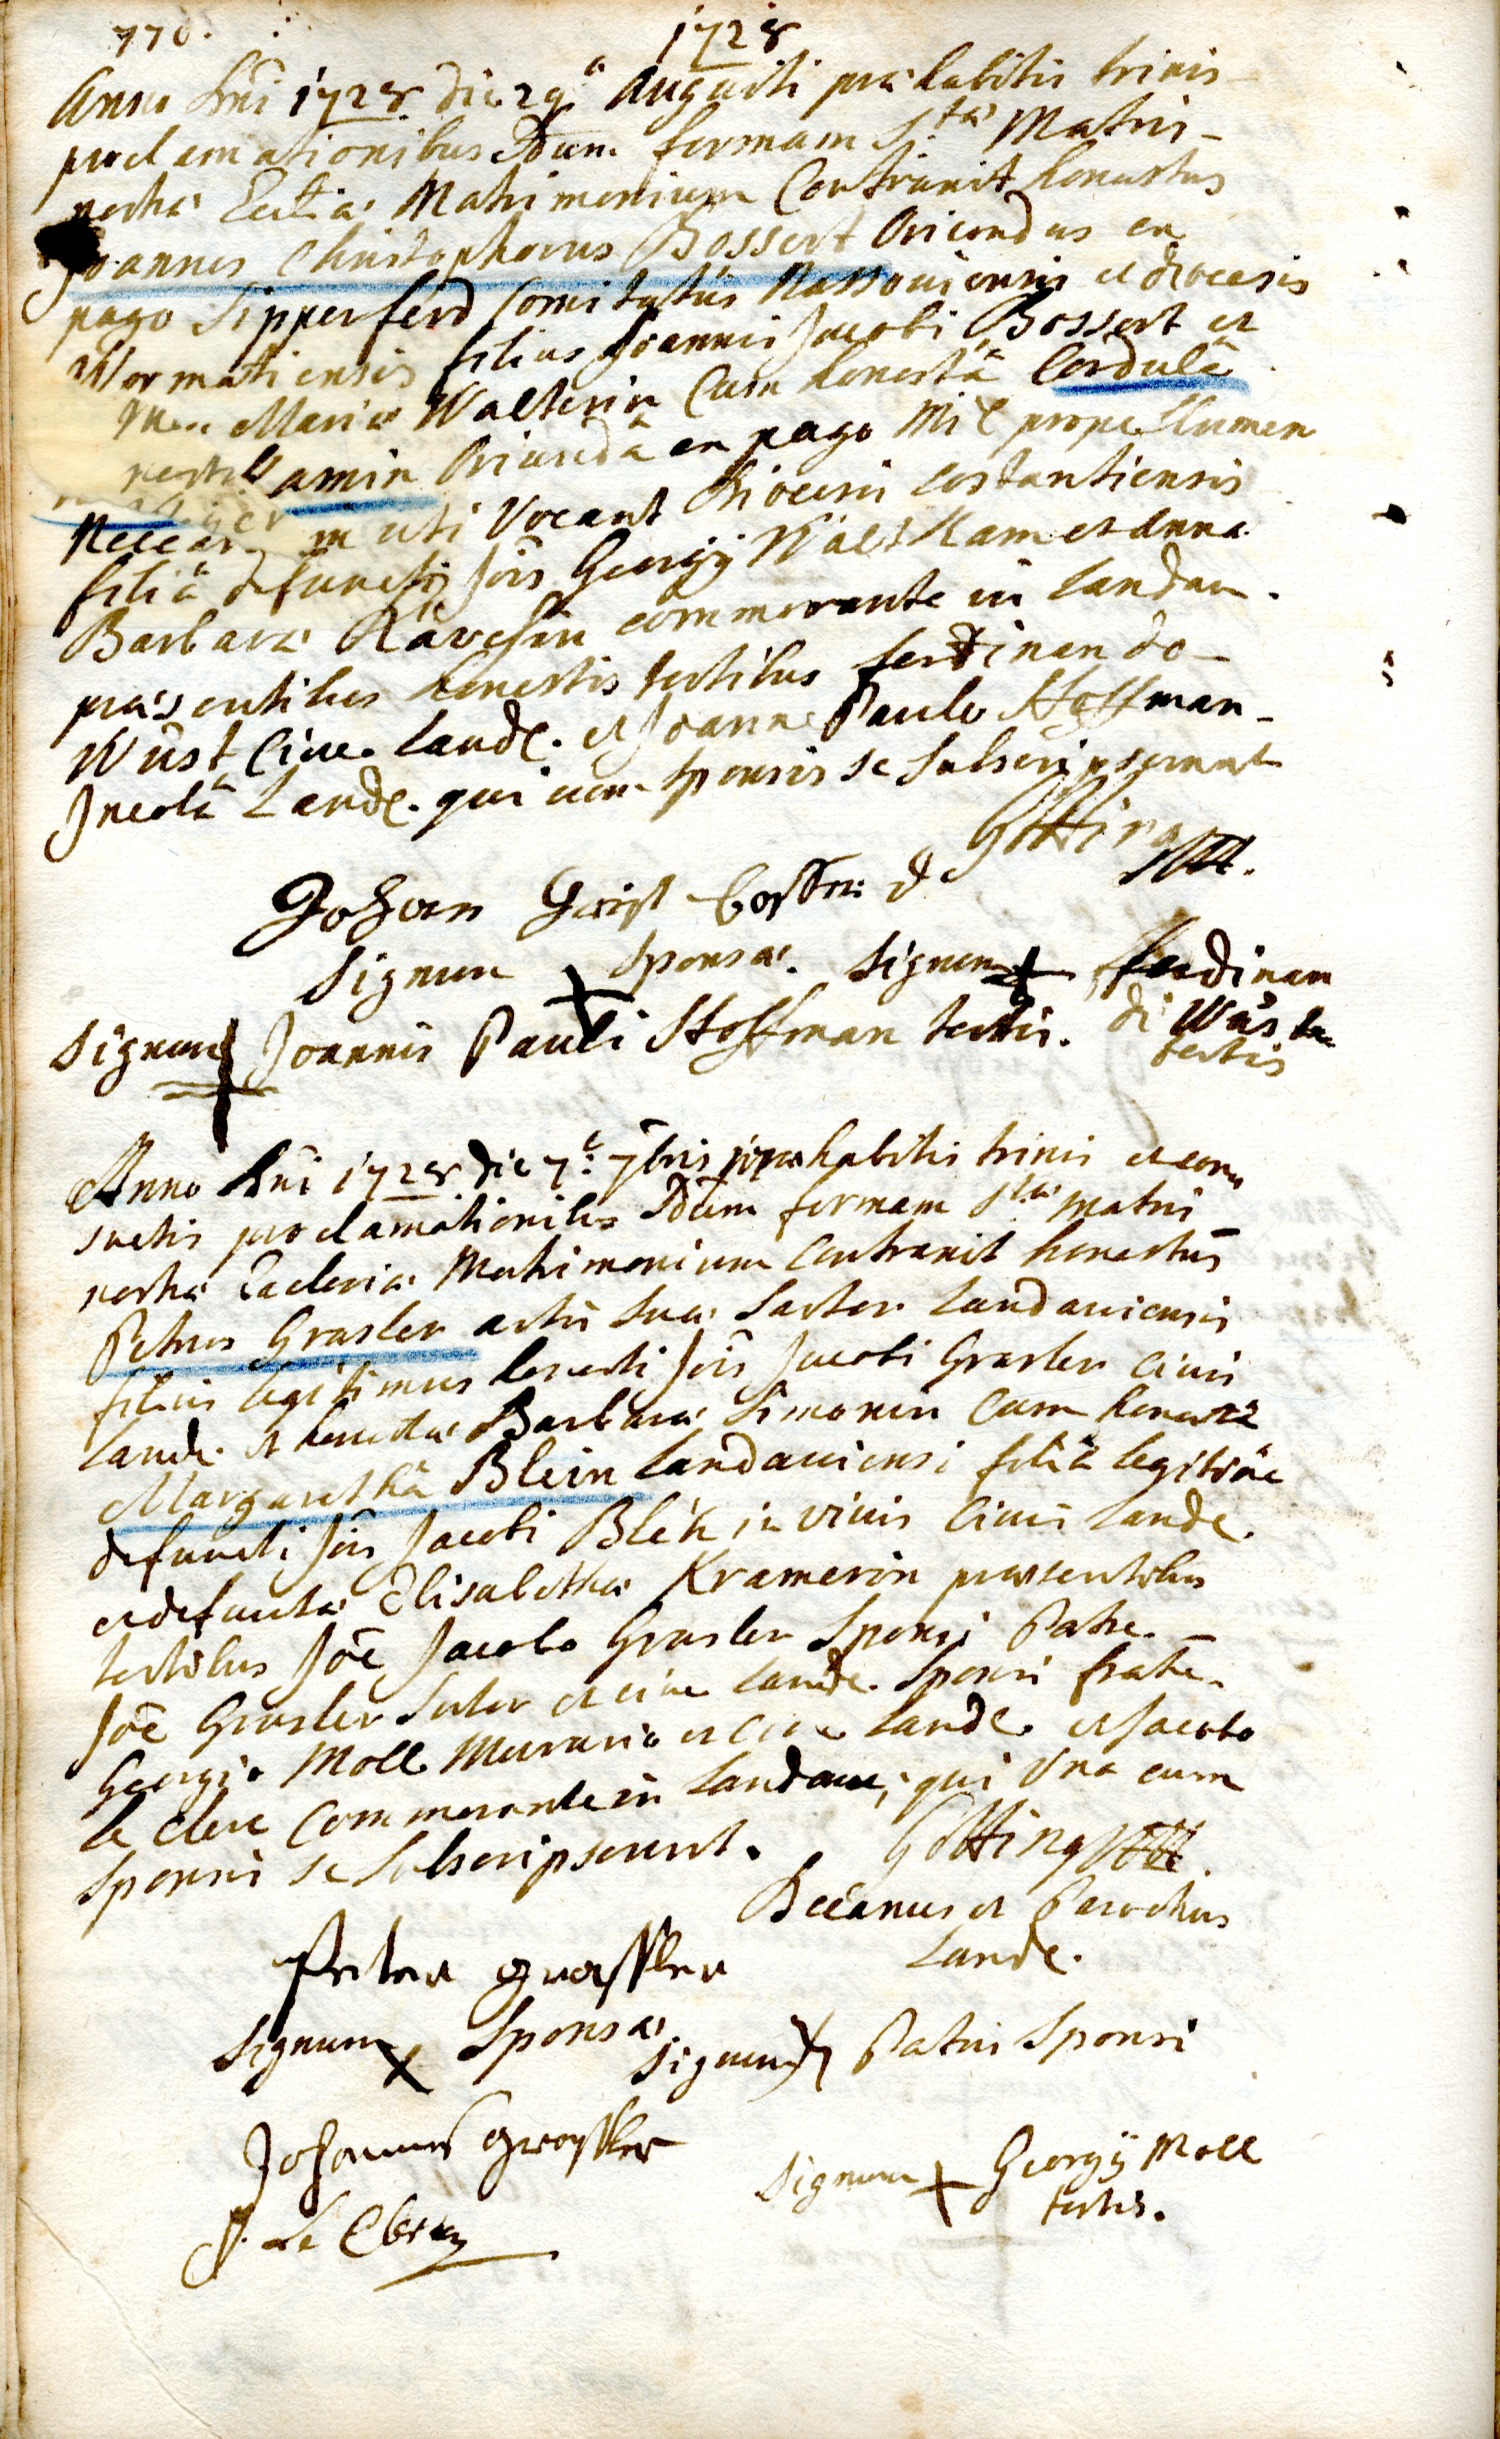 770. 1728
Anno Dni 1728 die 29ª Augusti præhabitis trinis
proclamationibus Sdum formam Stæ Matris
nostræ Eccliæ Matrimonium Contraxit honestus
Joannes Christophorus Bossert Oriundus ex
pago Sipperferd Comitatûs Nassoviensis et diocesis
Wormatiensis filius Joannis Jacobi Bossert et
Mariæ Walterin Cum honestâ Cordulâ
amin Oriundâ ex pago Mil prope flumen
uti Vocant Diocesis Costantiensis
filiâ defuncti Jois Georgÿ Waltkam et Anna
Barbaræ commorante in Landau.
præsentibus honestis testibus ferdinando
Wüst Cive Lande. et Joanne Paulo Hoffman
Incolâ Lande. qui cum sponsis se subscripserunt
Götting
Johan Christ Bossert
Signum x sponsæ. Signum + ferdinan
di Wüst
testis
Signum + Joannis Pauli Hoffman testis.
Anno Dni 1728 die 7ª 7bris præhabitis trinis et con
suetis proclamationibus Sdum formam Stæ Matris
nostræ Ecclesiæ Matrimonium Contraxit honestus
Petrus Grasler artis suæ Sartor Landaviensis
filius legitimus honesti Jois Jacobi Grasler Civis
Lande. et honestæ Barbaræ Simonin Cum honestâ
Margarethâ Blein Landaviensi filiâ legitimâ
defuncti Jois Jacobi Blein in vivis Civis Lande.
et defunctæ Elisabethæ Kramerin præsentibus
testibus Joe Jacobo Grasler Sponsi Patre.
Joe Grasler Sutor et cive Lande. Sponsi fratre.
Georgio Moll Murario et Cive Lande. et Jacobo
le Clerc Commorante in Landau, qui Una cum
Sponsis se Subscripserunt. Götting
Decanus et Parochus
Lande.
Peter grassler
Signum x Sponsæ. Signum x Patris Sponsi
Johannes grassler
Signum + Georgÿ Moll
testis.
J. Le Clerc